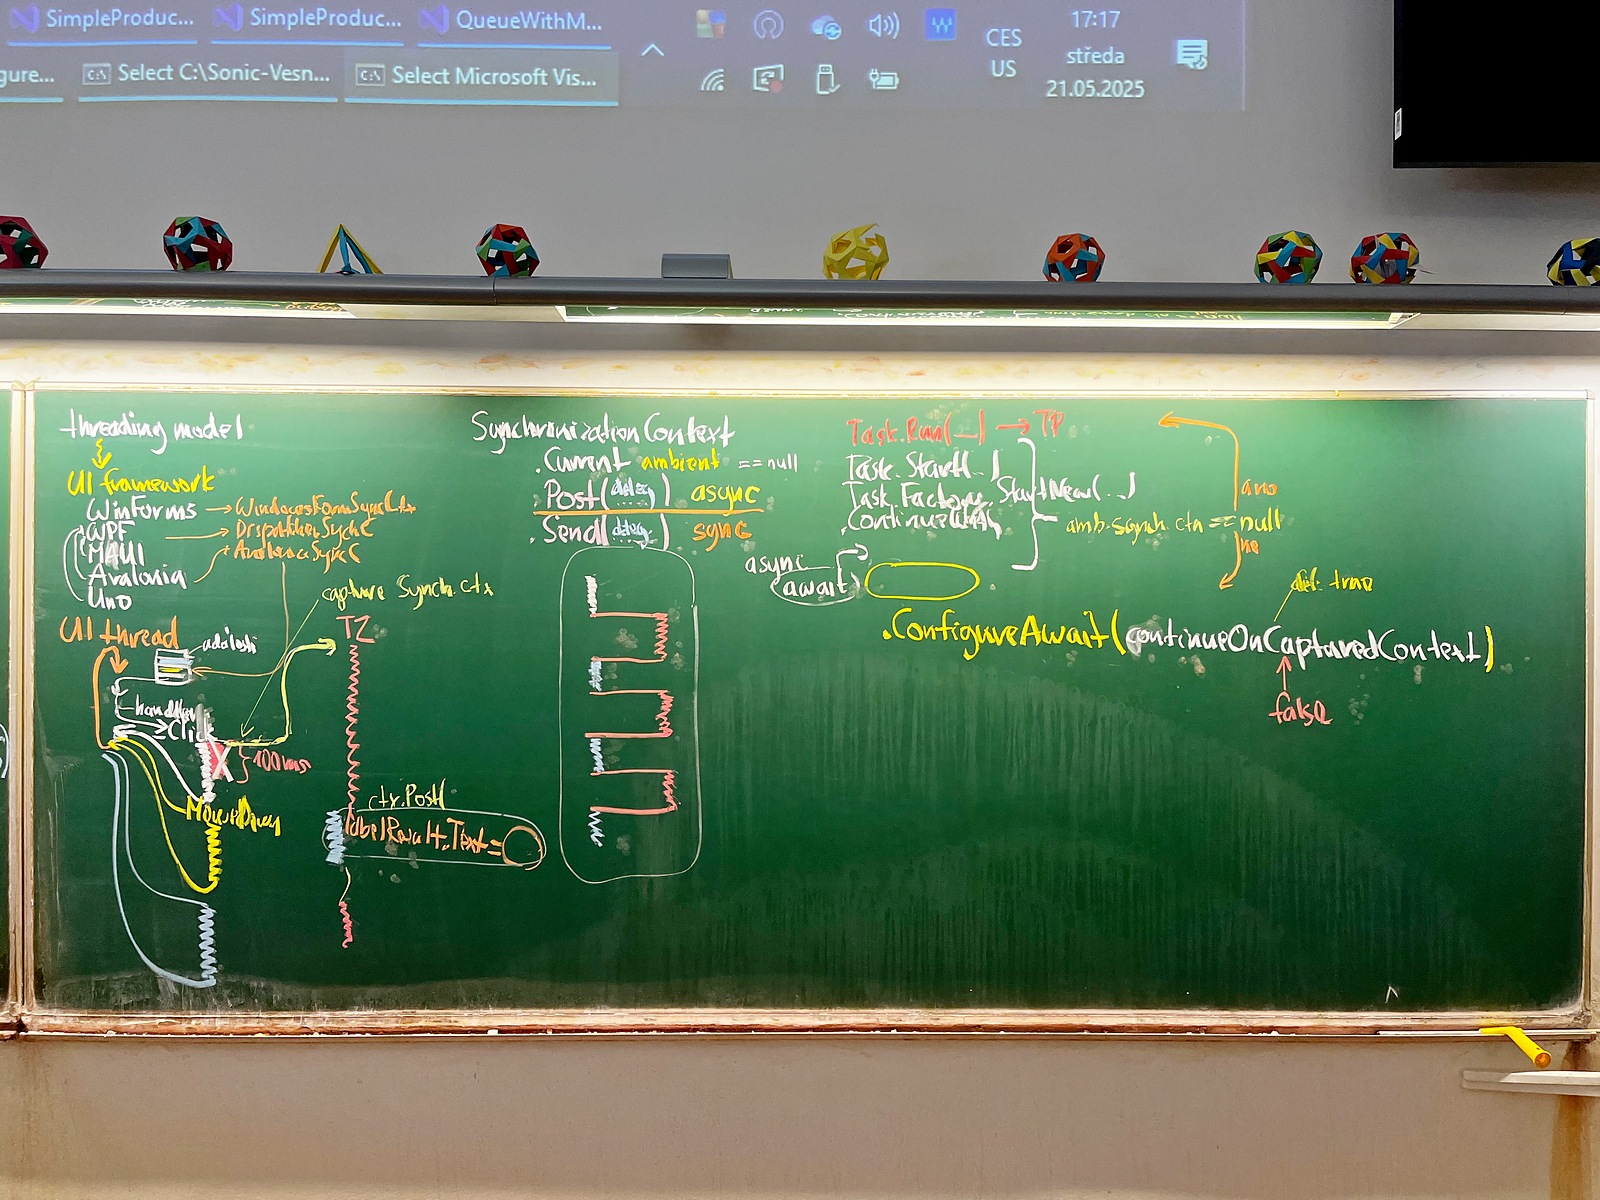 SimpleProduc...
SimpleProduc...
QueueWithM...
gure...
Select C:\Sonic-Vesn...
Select Microsoft Vis...
CES
US
17:17
středa
21.05.2025
threading model
UI framework
WinForms → WindowsFormsSyncCtx
WPF → DispatcherSyncC
MAUI
Avalonia → AvaloniaSyncC
Uno
UI thread
události
handler
Click
100ms
MouseDown
capture Synch.ctx
T2
ctx.Post(
labelResult.Text=
SynchronizationContext
.Current ambient == null
.Post( ) async
.Send( ) sync
Task.Run(...) → TP
Task.Start(..)
Task.Factory.StartNew(...)
.ContinueWith(
amb. synch. ctx == null
ano
ne
async
(await)
def. true
.ConfigureAwait(continueOnCapturedContext)
false